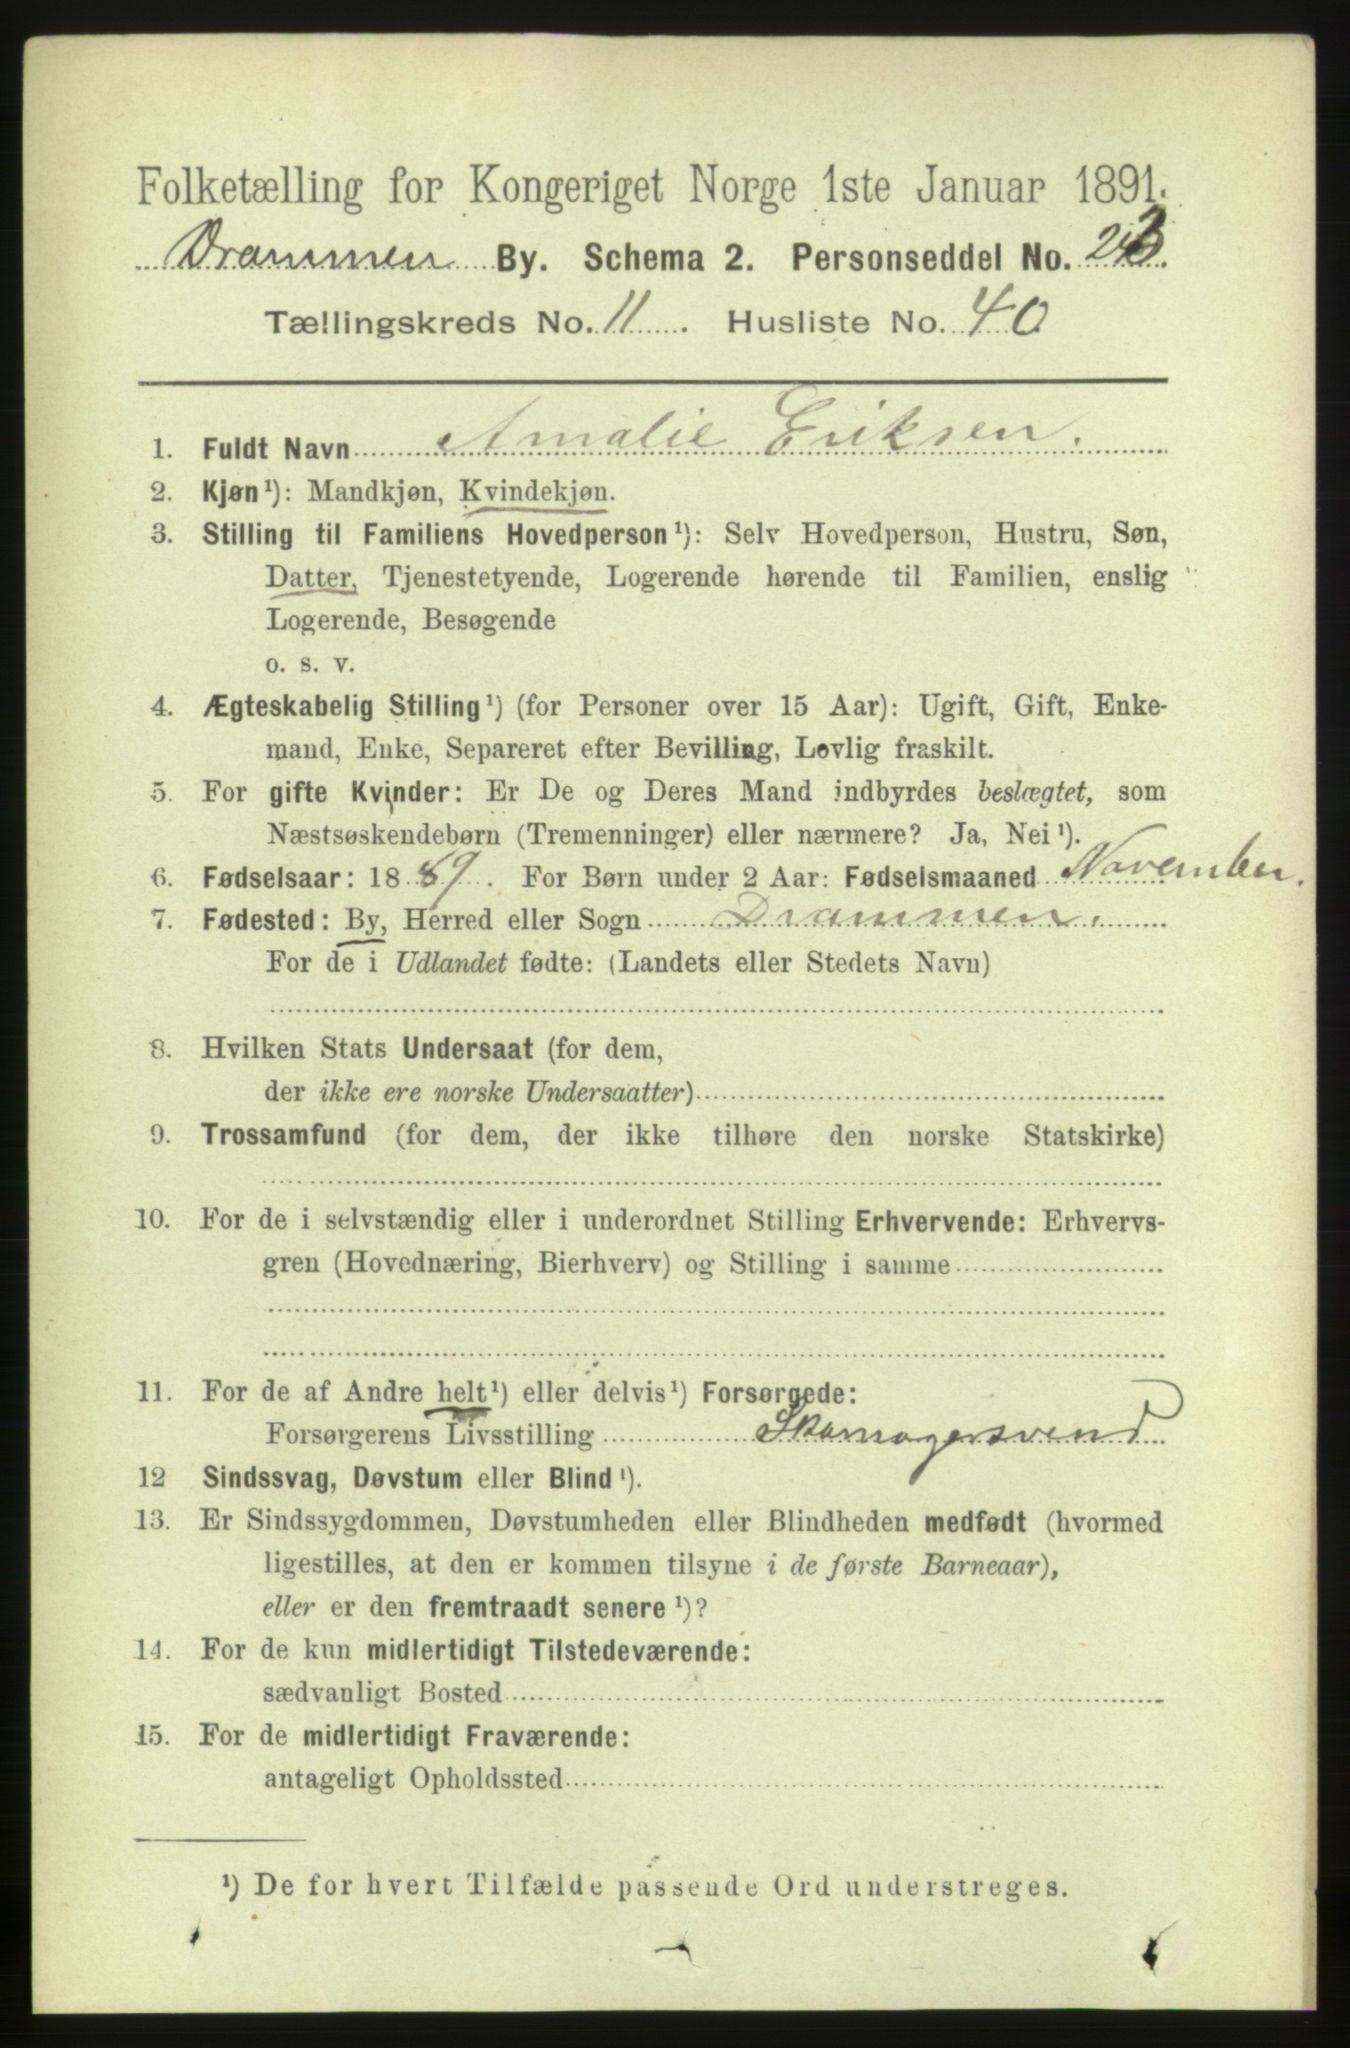 Folketælling for Kongeriget Norge 1ste Januar 1891.
Drammen By. Schema 2. Personseddel No. 23
Tællingskreds No. 11. Husliste No. 40
1. Fuldt Navn Amalie Eriksen.
2. Kjøn¹): Mandkjøn, Kvindekjøn.
3. Stilling til Familiens Hovedperson¹): Selv Hovedperson, Hustru, Søn,
Datter, Tjenestetyende, Logerende hørende til Familien, enslig
Logerende, Besøgende
o. s. v.
4. Ægteskabelig Stilling¹) (for Personer over 15 Aar): Ugift, Gift, Enke-
mand, Enke, Separeret efter Bevilling, Lovlig fraskilt.
5. For gifte Kvinder: Er De og Deres Mand indbyrdes beslægtet, som
Næstsøskendebørn (Tremenninger) eller nærmere? Ja, Nei¹).
6. Fødselsaar: 1889. For Børn under 2 Aar: Fødselsmaaned November.
7. Fødested: By, Herred eller Sogn Drammen.
For de i Udlandet fødte: (Landets eller Stedets Navn)
8. Hvilken Stats Undersaat (for dem,
der ikke ere norske Undersaatter)
9. Trossamfund (for dem, der ikke tilhøre den norske Statskirke)
10. For de i selvstændig eller i underordnet Stilling Erhvervende: Erhvervs-
gren (Hovednæring, Bierhverv) og Stilling i samme
11. For de af Andre helt¹) eller delvis¹) Forsørgede:
Forsørgerens Livsstilling Skomagersvend
12 Sindssvag, Døvstum eller Blind¹).
13. Er Sindssygdommen, Døvstumheden eller Blindheden medfødt (hvormed
ligestilles, at den er kommen tilsyne i de første Barneaar),
eller er den fremtraadt senere¹)?
14. For de kun midlertidigt Tilstedeværende:
sædvanligt Bosted
15. For de midlertidigt Fraværende:
antageligt Opholdssted
¹) De for hvert Tilfælde passende Ord understreges.